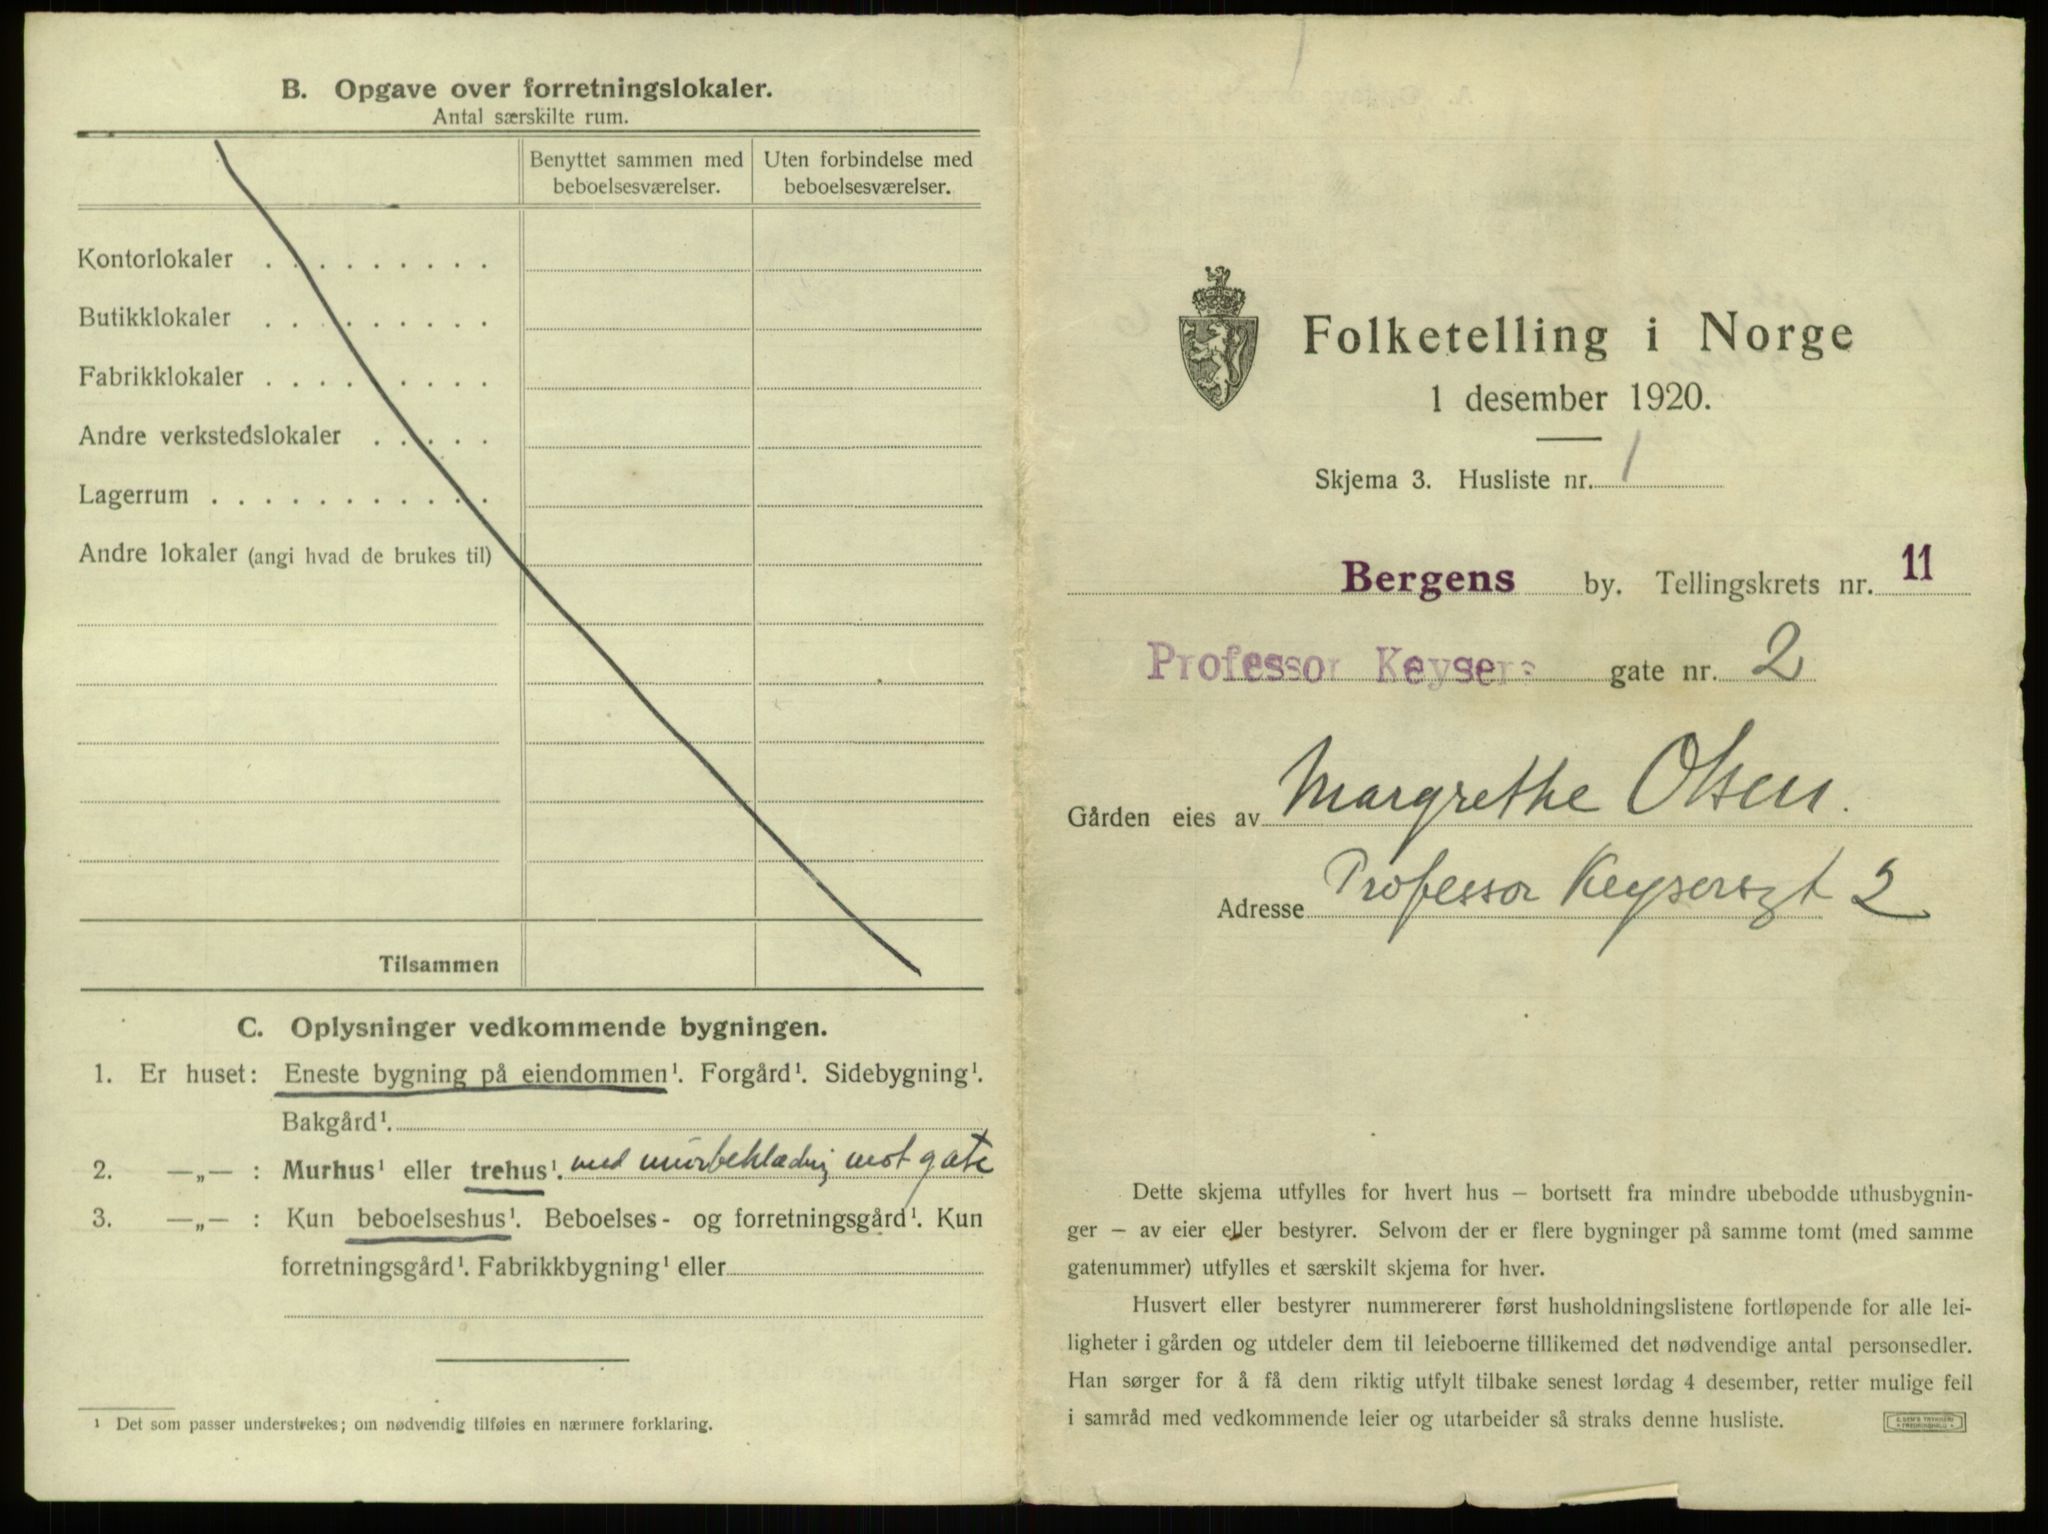 B. Opgave over forretningslokaler.
Antal særskilte rum.
Benyttet sammen med beboelsesværelser.
Uten forbindelse med beboelsesværelser.
Kontorlokaler . . . . . . . . .
Butikklokaler . . . . . . . . .
Fabrikklokaler . . . . . . . . .
Andre verkstedslokaler . . . . .
Lagerrum . . . . . . . . . . .
Andre lokaler (angi hvad de brukes til)
Tilsammen
C. Oplysninger vedkommende bygningen.
1. Er huset: Eneste bygning på eiendommen¹. Forgård¹. Sidebygning¹.
Bakgård¹.
2. —„— : Murhus¹ eller trehus¹. med murbeklædnig mot gate
3. —„— : Kun beboelseshus¹. Beboelses- og forretningsgård¹. Kun
forretningsgård¹. Fabrikkbygning¹ eller
¹ Det som passer understrekes; om nødvendig tilføies en nærmere forklaring.
Folketelling i Norge
1 desember 1920.
Skjema 3. Husliste nr. 1
Bergens by. Tellingskrets nr. 11
Professor Keysers gate nr. 2
Gården eies av Margrethe Olsen.
Adresse Professor Keysersgt 2
Dette skjema utfylles for hvert hus – bortsett fra mindre ubebodde uthusbygnin-
ger – av eier eller bestyrer. Selvom der er flere bygninger på samme tomt (med samme
gatenummer) utfylles et særskilt skjema for hver.
Husvert eller bestyrer nummererer først husholdningslistene fortløpende for alle lei-
ligheter i gården og utdeler dem til leieboerne tillikemed det nødvendige antal personsedler.
Han sørger for å få dem riktig utfylt tilbake senest lørdag 4 desember, retter mulige feil
i samråd med vedkommende leier og utarbeider så straks denne husliste.